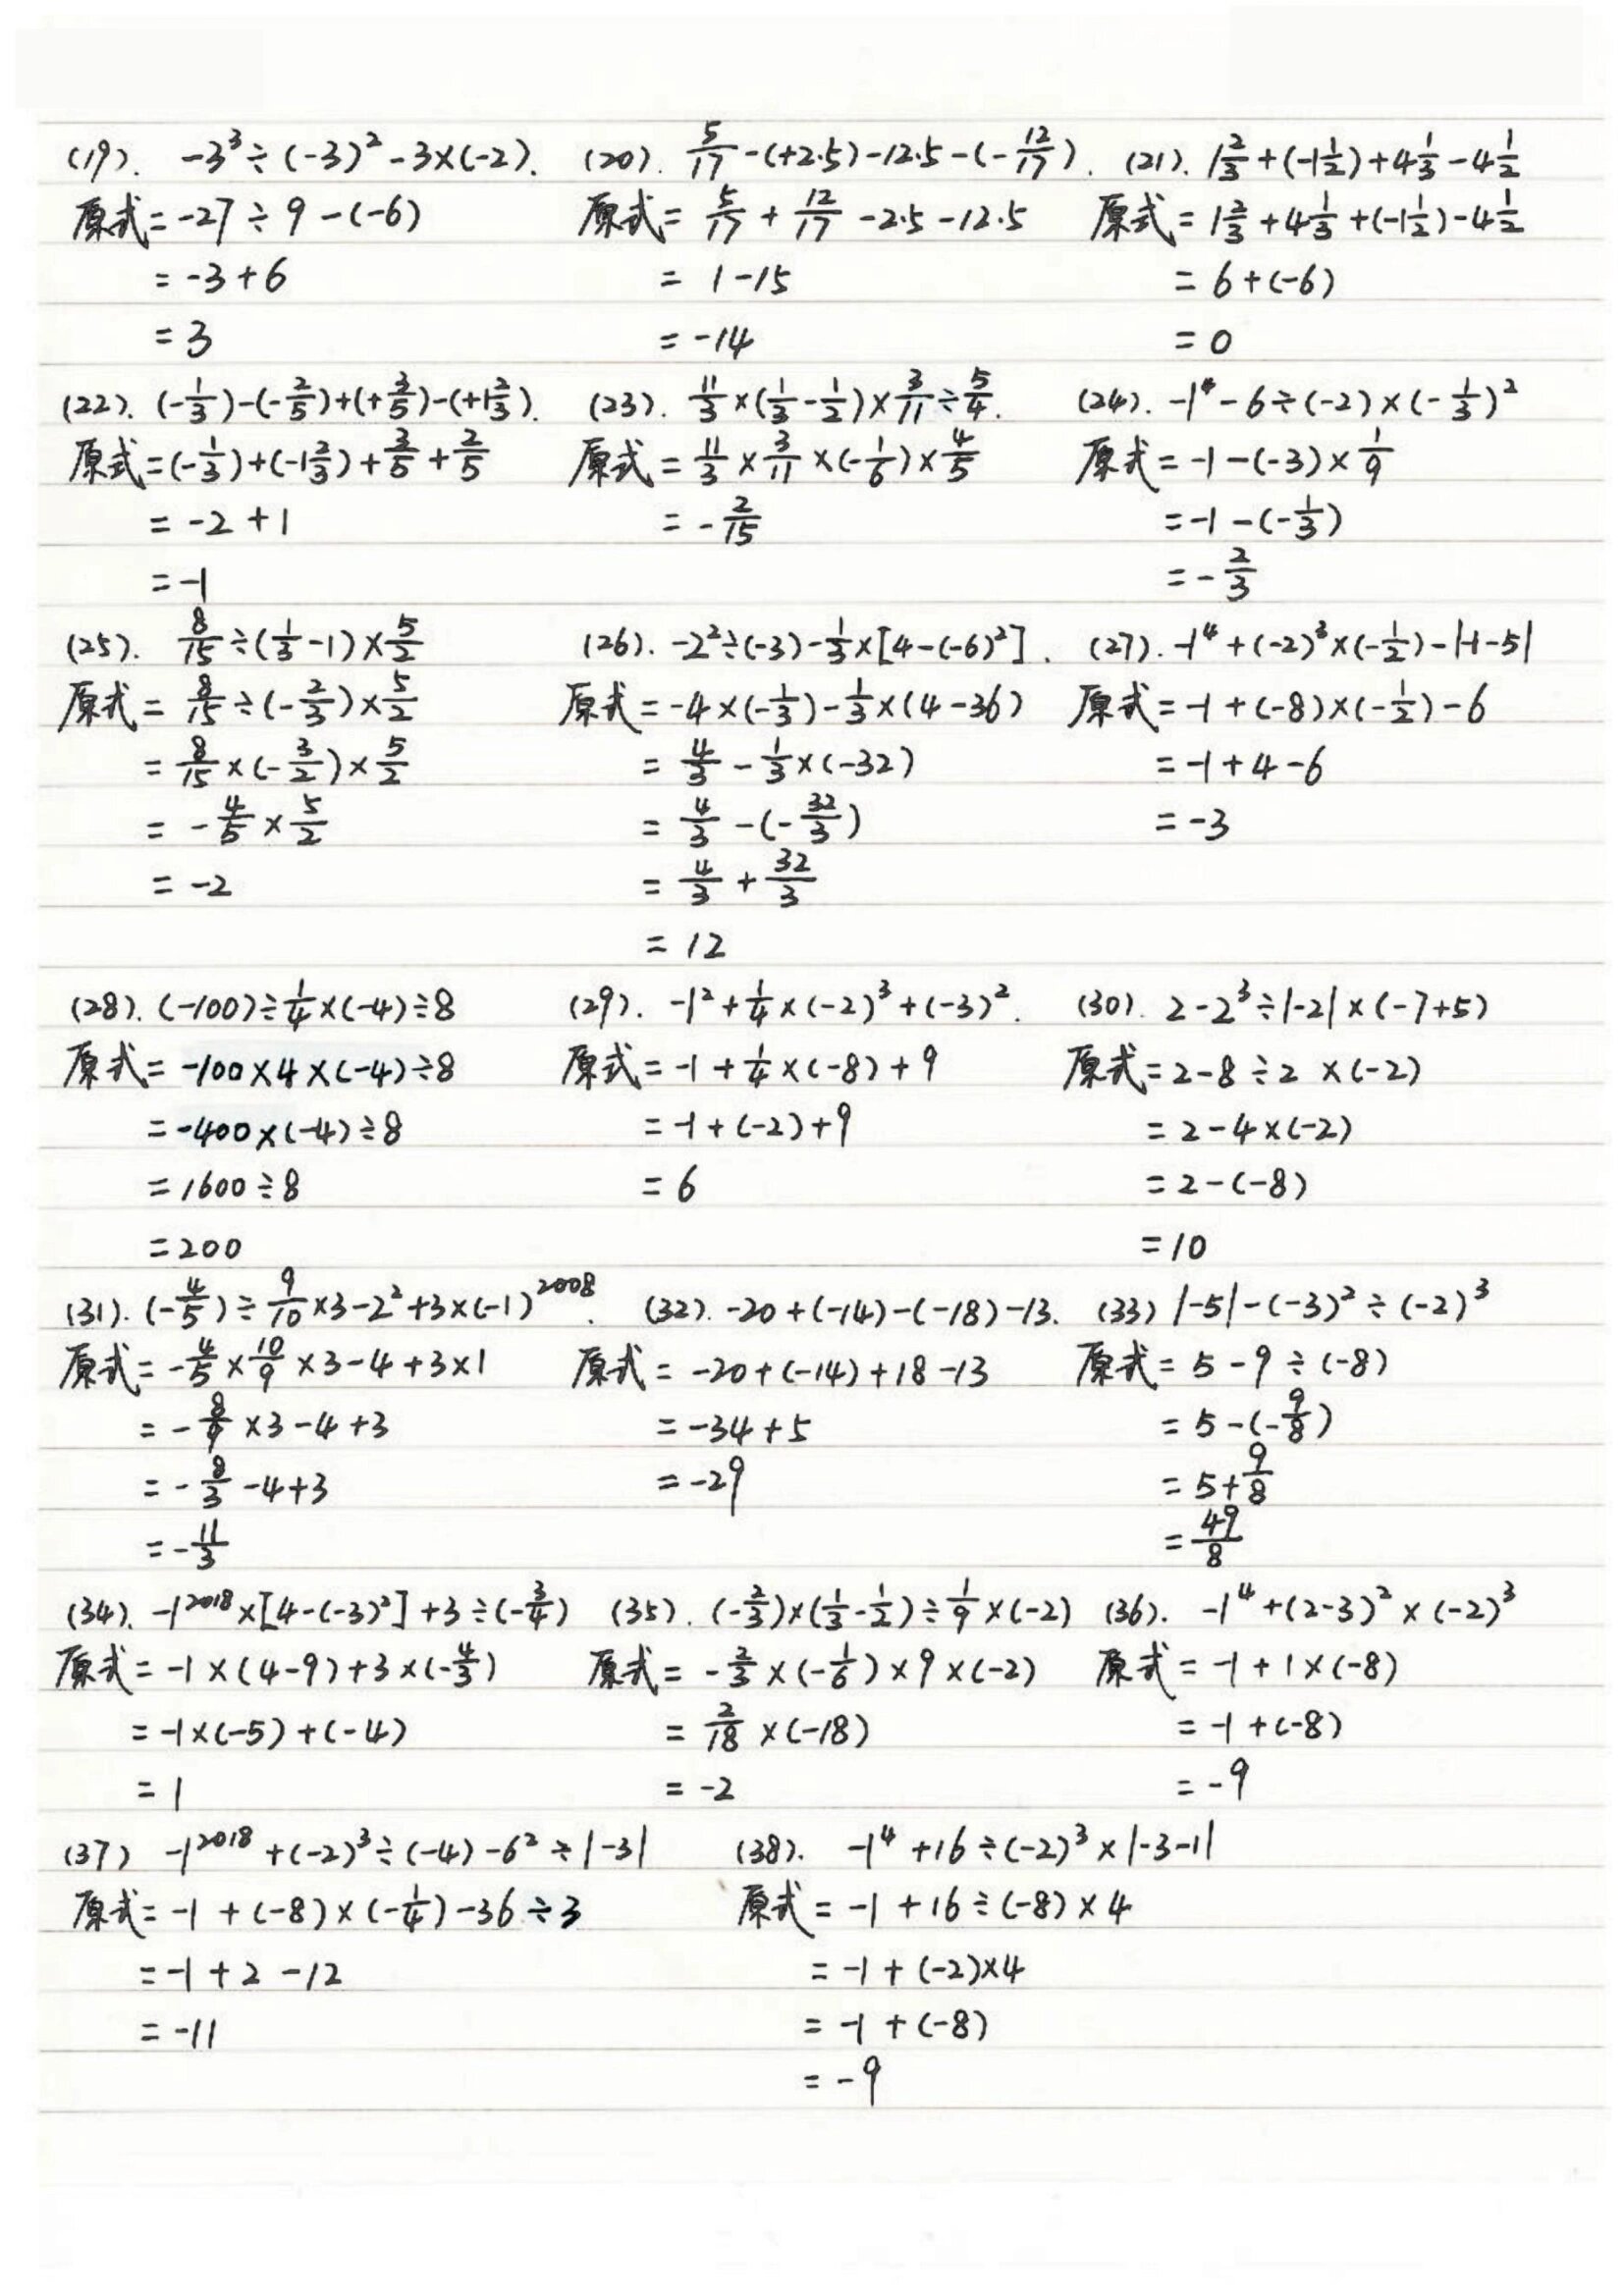 (19). -3³÷(-3)²-3×(-2).
原式=-27÷9-(-6)
=-3+6
=3
(20). 5/17-(+2.5)-12.5-(-12/17).
原式=5/17+12/17-2.5-12.5
=1-15
=-14
(21). 1 2/3+(-1 1/2)+4 1/3-4 1/2
原式=1 2/3+4 1/3+(-1 1/2)-4 1/2
=6+(-6)
=0
(22). (-1/3)-(-2/5)+(+3/5)-(+1 2/3).
原式=(-1/3)+(-1 2/3)+3/5+2/5
=-2+1
=-1
(23). 11/3×(1/3-1/2)×3/11÷5/4.
原式=11/3×3/11×(-1/6)×4/5
=-2/15
(24). -1⁴-6÷(-2)×(-1/3)²
原式=-1-(-3)×1/9
=-1-(-1/3)
=-2/3
(25). 8/15÷(1/3-1)×5/2
原式=8/15÷(-2/3)×5/2
=8/15×(-3/2)×5/2
=-4/5×5/2
=-2
(26). -2²÷(-3)-1/3×[4-(-6)²].
原式=-4×(-1/3)-1/3×(4-36)
=4/3-1/3×(-32)
=4/3-(-32/3)
=4/3+32/3
=12
(27). -1⁴+(-2)³×(-1/2)-|-1-5|
原式=-1+(-8)×(-1/2)-6
=-1+4-6
=-3
(28). (-100)÷1/4×(-4)÷8
原式=-100×4×(-4)÷8
=-400×(-4)÷8
=1600÷8
=200
(29). -1²+1/4×(-2)³+(-3)².
原式=-1+1/4×(-8)+9
=-1+(-2)+9
=6
(30). 2-2³÷|-2|×(-7+5)
原式=2-8÷2×(-2)
=2-4×(-2)
=2-(-8)
=10
(31). (-4/5)÷9/10×3-2²+3×(-1)²⁰⁰⁸.
原式=-4/5×10/9×3-4+3×1
=-8/9×3-4+3
=-8/3-4+3
=-11/3
(32). -20+(-14)-(-18)-13.
原式=-20+(-14)+18-13
=-34+5
=-29
(33) |-5|-(-3)²÷(-2)³
原式=5-9÷(-8)
=5-(-9/8)
=5+9/8
=49/8
(34). -1²⁰¹⁸×[4-(-3)²]+3÷(-3/4)
原式=-1×(4-9)+3×(-4/3)
=-1×(-5)+(-4)
=1
(35). (-2/3)×(1/3-1/2)÷1/9×(-2)
原式=-2/3×(-1/6)×9×(-2)
=2/18×(-18)
=-2
(36). -1⁴+(2-3)²×(-2)³
原式=-1+1×(-8)
=-1+(-8)
=-9
(37) -1²⁰¹⁸+(-2)³÷(-4)-6²÷|-3|
原式=-1+(-8)×(-1/4)-36÷3
=-1+2-12
=-11
(38). -1⁴+16÷(-2)³×|-3-1|
原式=-1+16÷(-8)×4
=-1+(-2)×4
=-1+(-8)
=-9